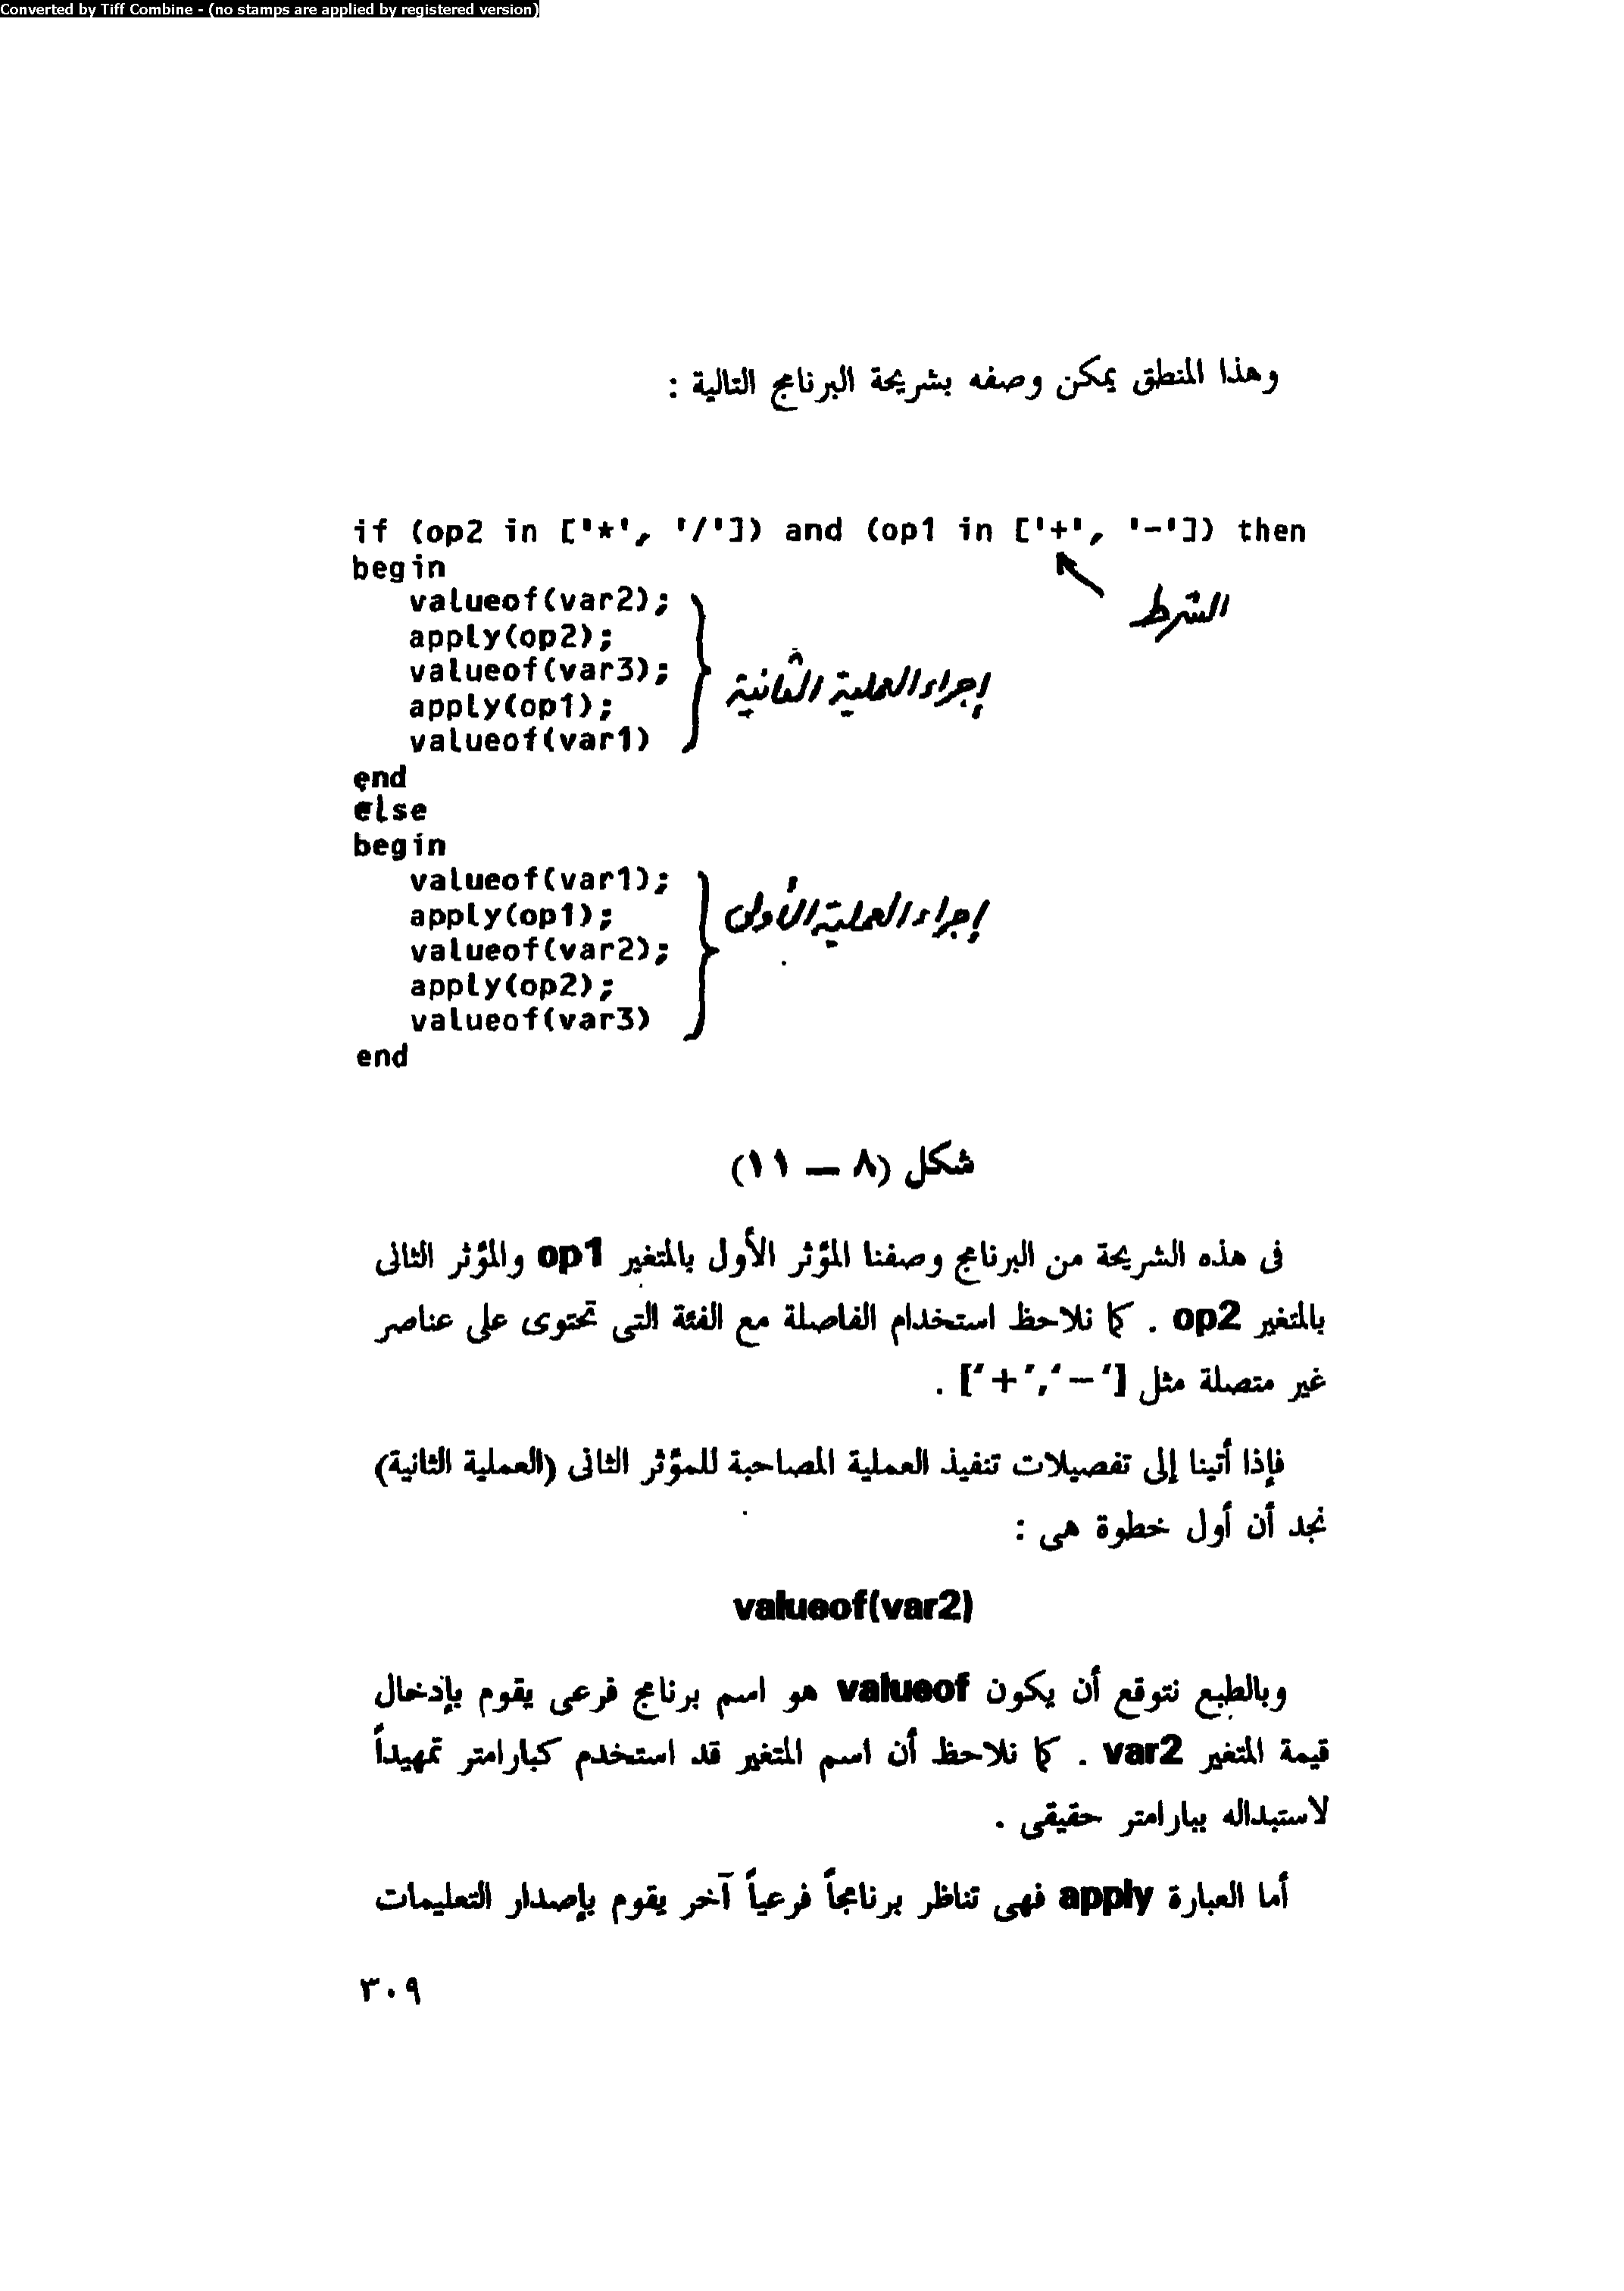 Converted by Tiff Combine - (no stamps are applied by registered version)
وهذا المنطق يمكن وصفه بشريحة البرنامج التالية :
if (op2 in ['*', '/']) and (op1 in ['+', '-']) then
begin
الشرط
valueof(var2);
apply(op2);
valueof(var3);
إجراء العملية الثانية
apply(op1);
valueof(var1)
end
else
begin
valueof(var1);
apply(op1);
إجراء العملية الأولى
valueof(var2);
apply(op2);
valueof(var3)
end
شكل (٨ – ١١)
فى هذه الشريحة من البرنامج وصفنا المؤثر الأول بالمتغير op1 والمؤثر الثانى
بالمتغير op2 . كما نلاحظ استخدام الفاصلة مع الفئة التى تحتوى على عناصر
غير متصلة مثل ['+','-'] .
فإذا أتينا إلى تفصيلات تنفيذ العملية المصاحبة للمؤثر الثانى (العملية الثانية)
نجد أن أول خطوة هى :
valueof(var2)
وبالطبع نتوقع أن يكون valueof هو اسم برنامج فرعى يقوم بإدخال
قيمة المتغير var2 . كما نلاحظ أن اسم المتغير قد استخدم كبارامتر تمهيداً
لاستبداله ببارامتر حقيقى .
أما العبارة apply فهى تناظر برنامجاً فرعياً آخر يقوم بإصدار التعليمات
٣٠٩